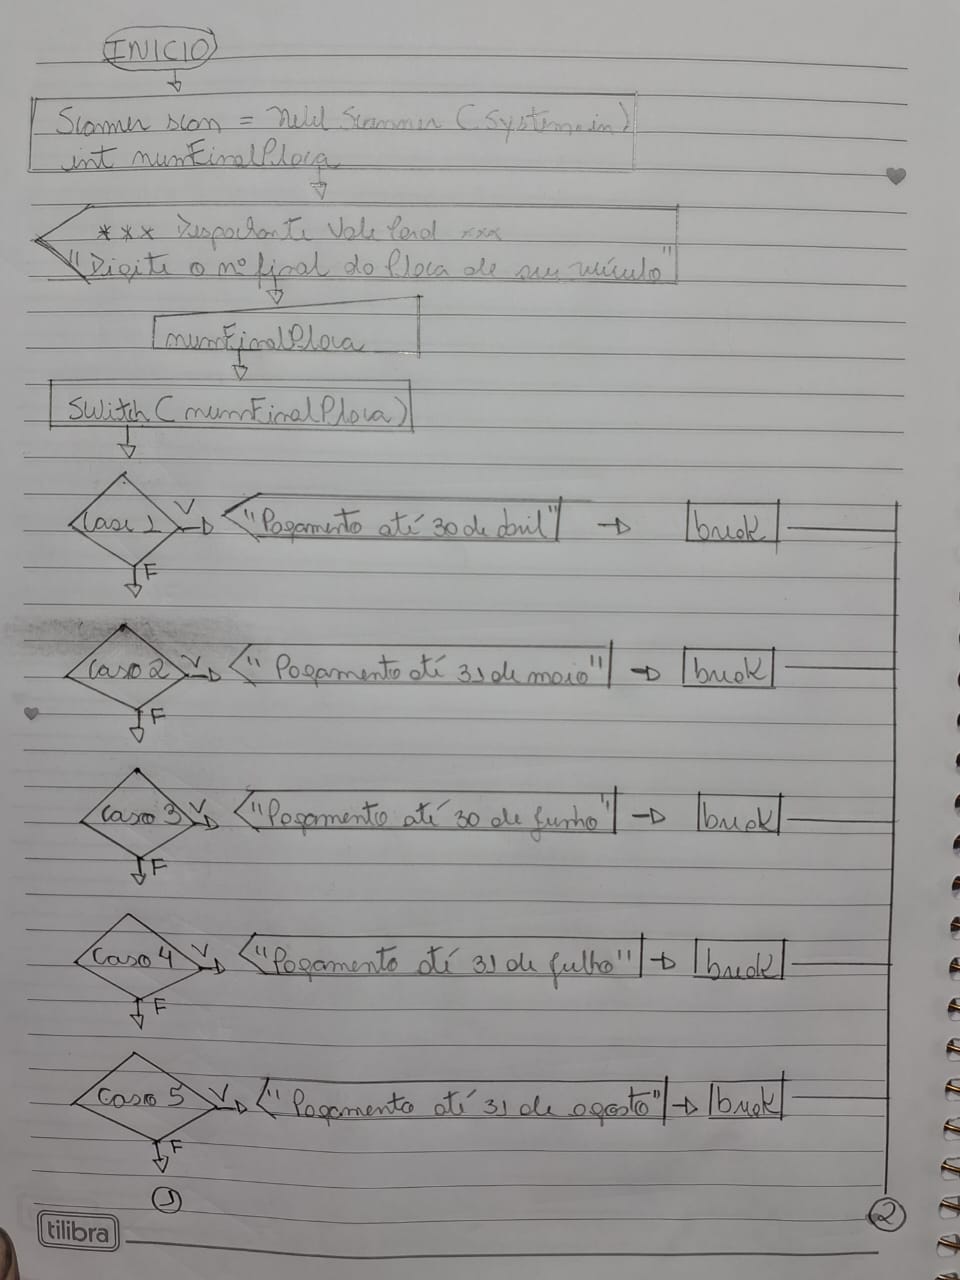 INICIO
Scanner scan = new Scanner (System.in)
int numFinalPlaca
*** Despachante Vale Card ***
"Digite o nº final do placa de seu veículo"
numFinalPlaca
Switch (numFinalPlaca)
Case 1 V "Pagamento até 30 de abril" break
F
Caso 2 V "Pagamento até 31 de maio" break
F
Caso 3 V "Pagamento até 30 de junho" break
F
Caso 4 V "Pagamento até 31 de julho" break
F
Caso 5 V "Pagamento até 31 de agosto" break
F
1
2
tilibra